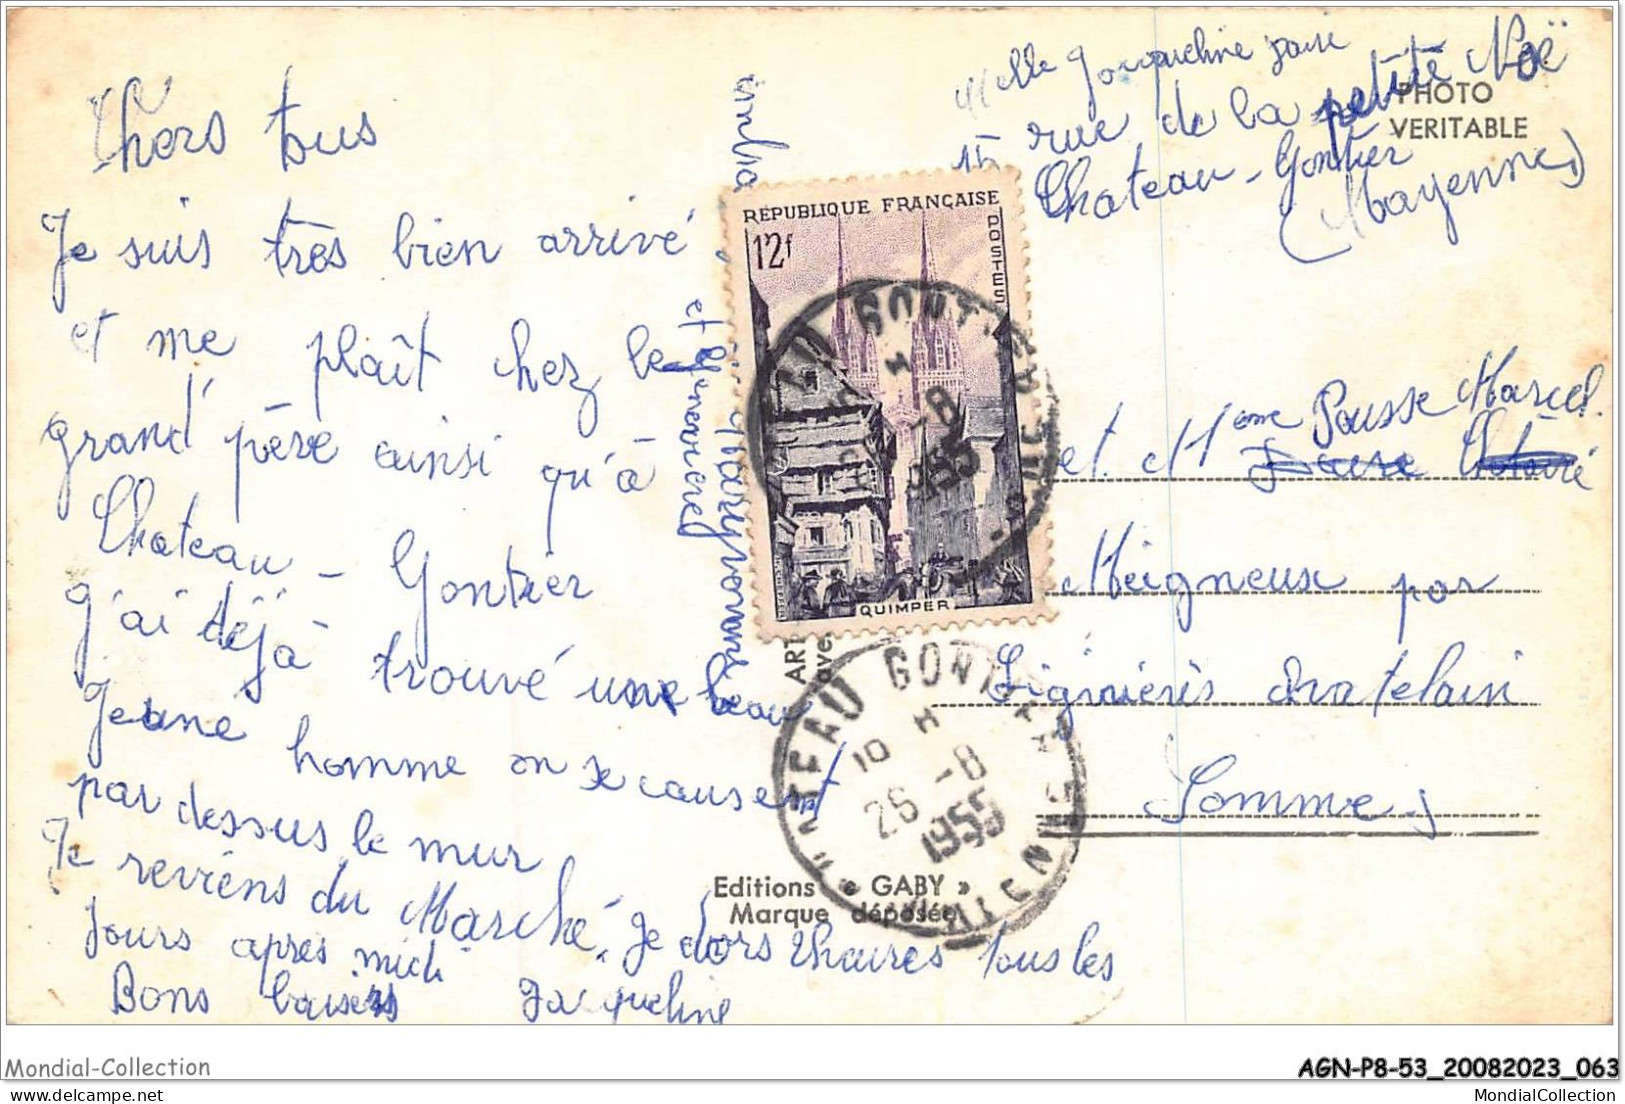 Chers tous
Je suis très bien arrivé,
et me plaît chez le
grand' père ainsi qu'à
Chateau - Gontier
J'ai déjà trouvé une beau
Jeune homme on se causent
par dessus le mur
Je reviens du Marché. Je dors 2 heures tous les
Jours apres midi
Bons baisers Jacqueline
et Genevieve
Melle Jacqueline
15 rue de la petite Noë
Chateau - Gontier
(Mayenne)
PHOTO
VERITABLE
REPUBLIQUE FRANÇAISE
12f
POSTES
QUIMPER
GONTIER
-8
1955
et Mme Pousse Marcel
Meigneux par
Lignières chatelain
Somme
ART
avec
CHATEAU GONTIER
10 H
26 -8
1955
MAYENNE
Editions « GABY »
Marque déposée
Mondial-Collection
AGN-P8-53_20082023_063
Mondial Collection
MondialCollection